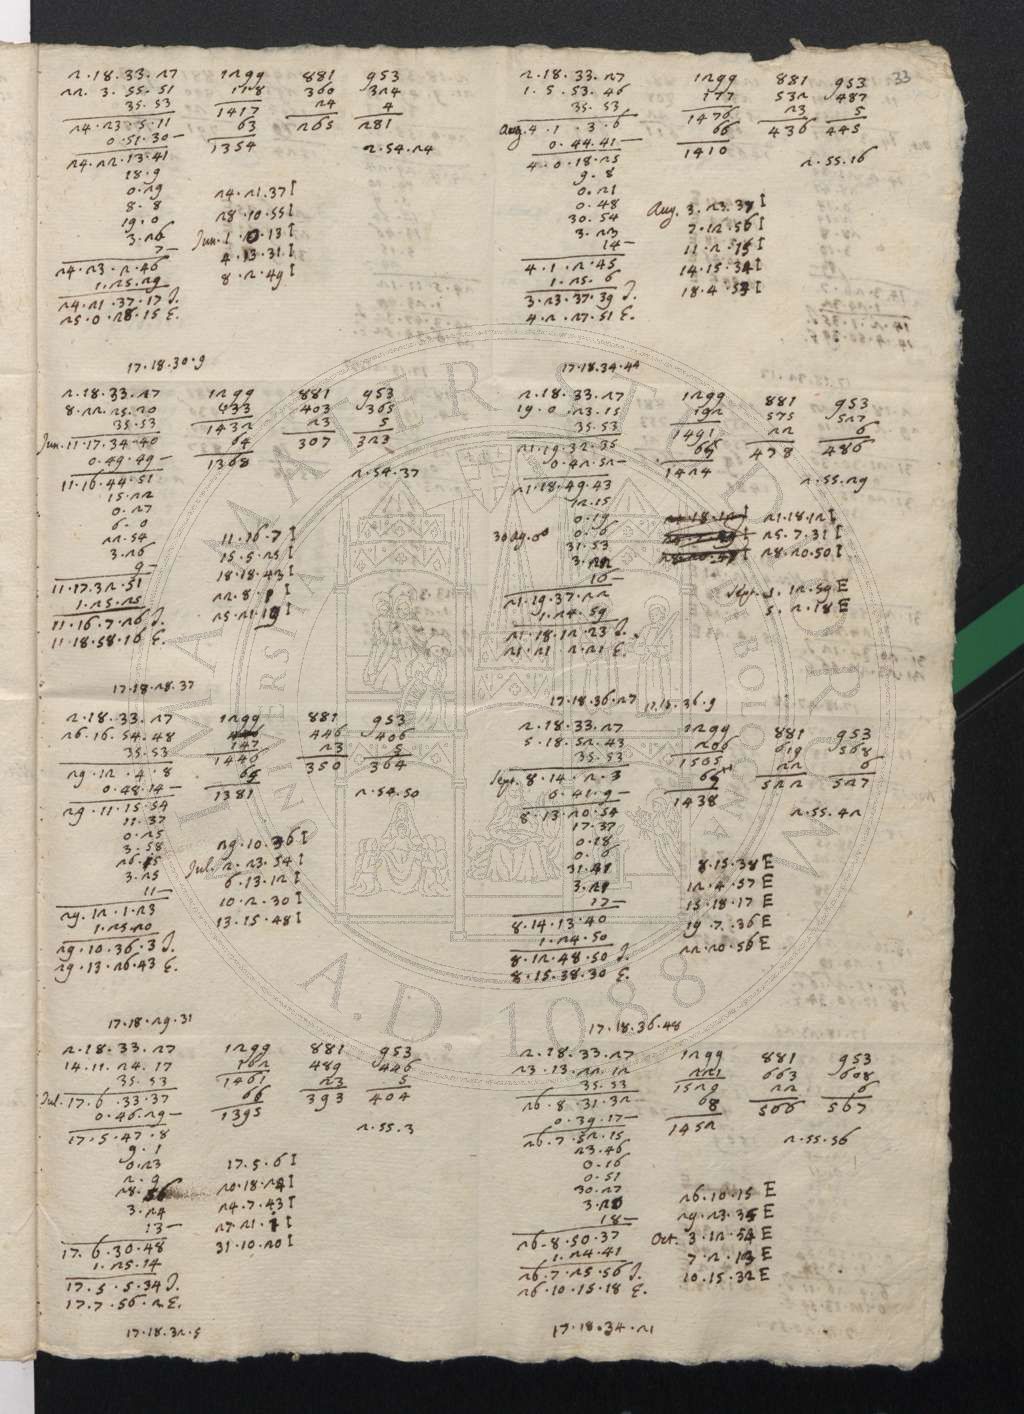 33
2.18.33.27 1299 881 953
22.3.55.51 118 360 324
35.53 1417 24 4
24.23.5.11 63 265 281
0.51.30— 1354
24.22.13.41 2.54.24
18.9
0.29
8.8 24.21.37 I
19.0 28.10.55 I
3.26 Jun. 1.0.13 I
7— 4.13.31 I
24.23.2.46 8.2.49 I
1.25.29
24.21.37.17 I.
25.0.28.15 E.
17.18.30.9
2.18.33.27 1299 881 953
8.22.25.20 133 403 365
35.53 1432 23 5
Jun. 11.17.34.40 64 307 323
0.49.49— 1368
11.16.44.51 2.54.37
15.22
0.27
6.0
22.54 11.16.7 I
3.26 15.5.25 I
9— 18.18.43 I
11.17.32.51 22.8.1 I
1.25.25 25.21.19 I
11.16.7.26 I.
11.18.58.16 E.
17.18.28.37
2.18.33.27 1299 881 953
26.16.54.48 446 406
35.53 147 23 5
29.12.4.8 1446 350 364
0.48.14— 65
29.11.15.54 1381 2.54.50
11.37
0.25
3.58 29.10.36 I
26.15 Jul. 2.23.54 I
3.25 6.13.12 I
11— 10.2.30 I
29.12.1.23 13.15.48 I
1.25.20
29.10.36.3 I.
29.13.26.43 E.
17.18.29.31
2.18.33.27 1299 881 953
14.11.24.17 162 489 446
35.53 1461 23 5
Jul. 17.6.33.37 66 393 404
0.46.29— 1395
17.5.47.8 2.55.3
9.1
0.23 17.5.6 I
2.9 20.18.24 I
28.56 24.7.43 I
3.24 27.21.1 I
13— 31.10.20 I
17.6.30.48
1.25.14
17.5.5.34 I.
17.7.56.2 E.
17.18.32.5
2.18.33.27 1299 881 953
1.5.53.46 177 532 487
35.53 1476 23 5
Aug. 4.1.3.6 66 436 445
0.44.41— 1410
4.0.18.25 2.55.16
9.8
0.21
0.48 Aug. 3.23.37 I
30.54 7.12.56 I
3.23 11.2.15 I
14— 14.15.34 I
4.1.2.45 18.4.53 I
1.25.6
3.23.37.39 I.
4.2.27.51 E.
17.18.34.44
2.18.33.27 1299 881 953
19.0.23.15 192 575 527
35.53 1491 22 6
21.19.32.35 478 486
0.42.52— 1424
21.18.49.43 2.55.29
12.15
0.19 21.18.12 I
0.6 25.7.31 I
31.53 28.20.50 I
3.22
16— Sept. 1.12.59 E
21.19.37.22 5.2.18 E
1.24.59
21.18.12.23 I.
21.21.2.21 E.
17.18.36.27 17.18.36.9
2.18.33.27 1299 881 953
5.18.52.43 206 619 568
35.53 1505 22 6
Sept. 8.14.2.3 522 527
0.41.9— 1438
8.13.20.54 2.55.42
17.37
0.18
0.6
31.41 8.15.38 E
3.21 12.4.57 E
17— 15.18.17 E
8.14.13.40 19.7.36 E
1.24.50 22.20.56 E
8.12.48.50 I.
8.15.38.30 E.
17.18.36.48
2.18.33.27 1299 881 953
23.13.22.12 221 663 608
35.53 1529 22 6
26.8.31.32 68 566 567
0.39.17— 1452
26.7.52.15 2.55.56
23.46
0.16
0.51
30.27 26.10.15 E
3.20 29.23.35 E
18— Oct. 3.12.54 E
26.8.50.37 7.2.13 E
1.24.41 10.15.32 E
26.7.25.56 I.
26.10.15.18 E.
17.18.34.21
ALMA MATER STUDIORUM
A.D. 1088